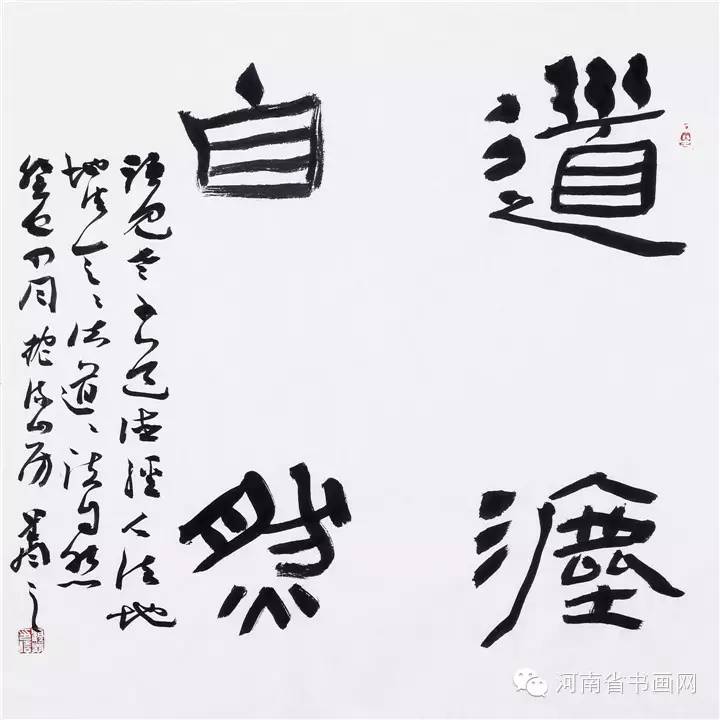 道灋
自然
語見老子道德經人法地
地法天天法道道法自然
癸巳
山房
河南省书画网